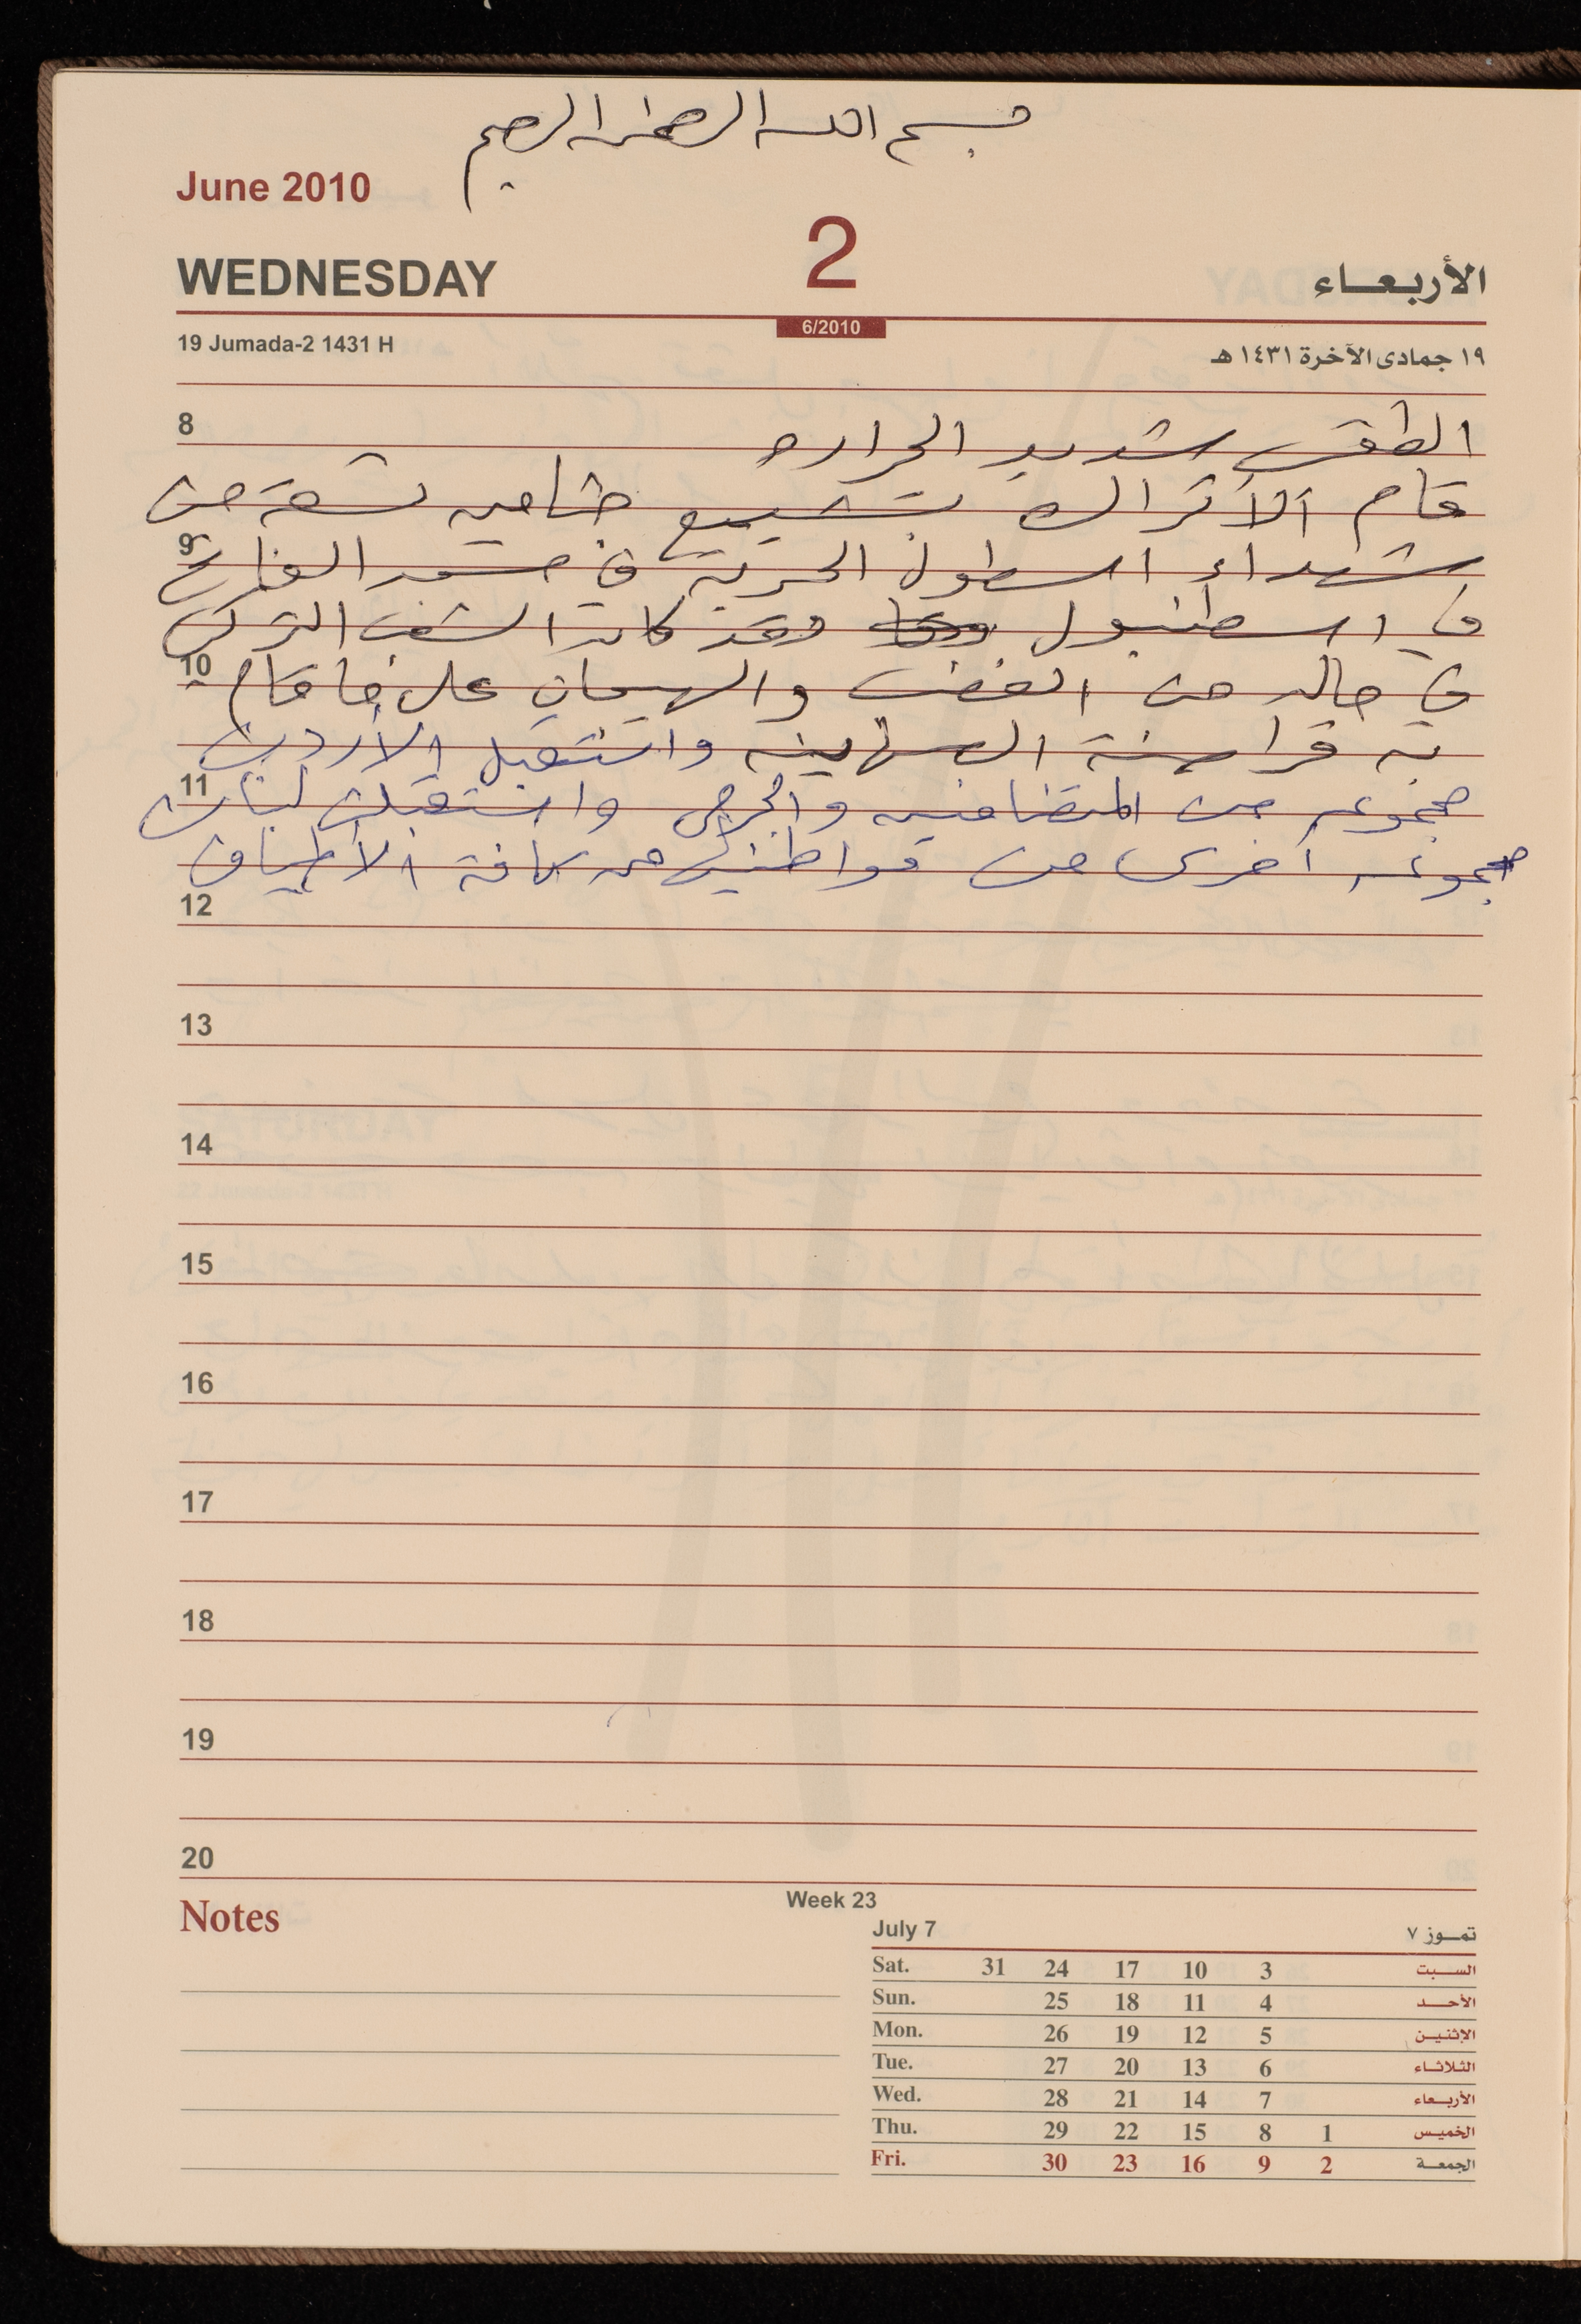 بسم الله الرحمن الرحيم
June 2010
2
WEDNESDAY
الأربعاء
6/2010
19 Jumada-2 1431 H
١٩ جمادى الآخرة ١٤٣١ هـ
8
الطقس شديد الحراره
قام الأتراك بتشييع جثامين تسعة من
9
شهداء اسطول الحرية في مسجد الفاتح
في اسطنبول فقد كان الشعب التركي
10
في حاله من الغضب والهيجان على ما قام
به قراصنة الصهاينه واستقبل الأردن
11
مجموعه من المتضامنين والجرحى واستقبلت لبنان
مجموعه أخرى من مواطنيها من كافة الأطياف
12
13
14
15
16
17
18
19
20
Notes
Week 23
July 7
تمـوز ٧
Sat. 31 24 17 10 3 السبت
Sun. 25 18 11 4 الأحد
Mon. 26 19 12 5 الإثنين
Tue. 27 20 13 6 الثلاثاء
Wed. 28 21 14 7 الأربعاء
Thu. 29 22 15 8 1 الخميس
Fri. 30 23 16 9 2 الجمعة